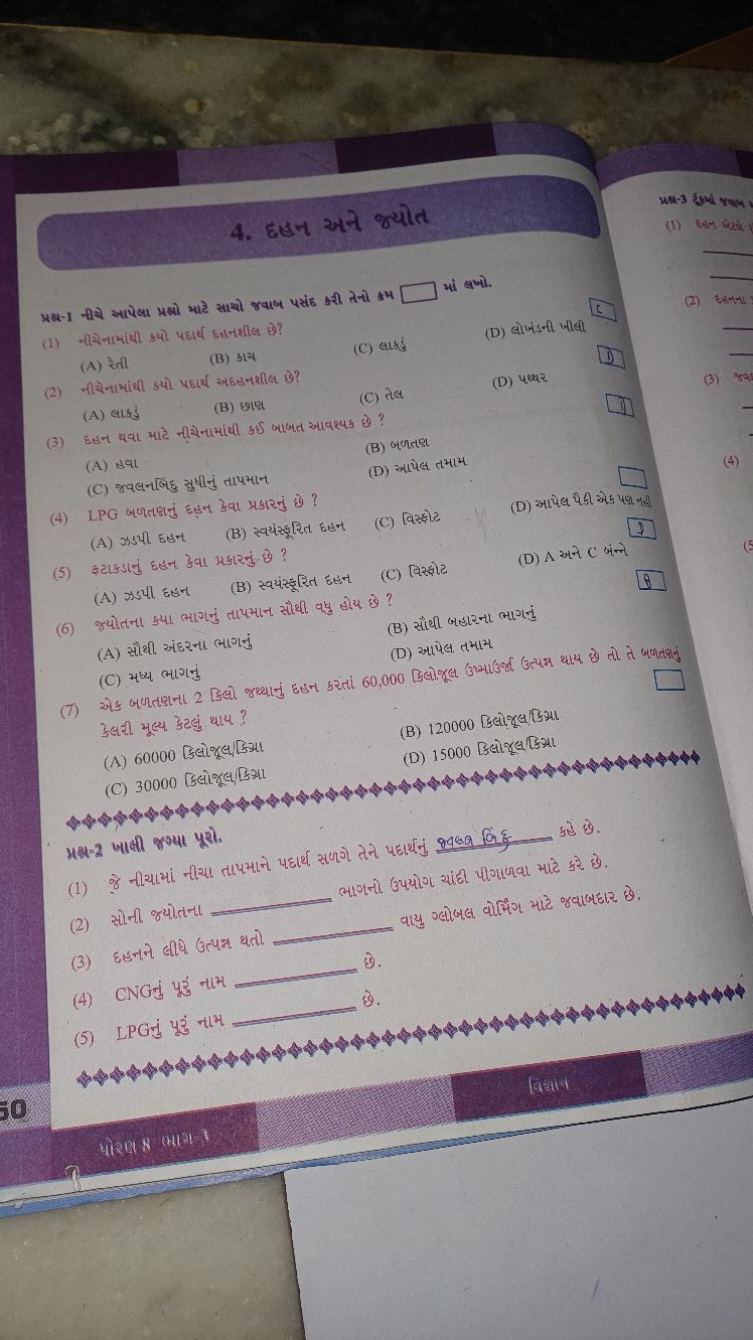 4. દહન અને જ્યોત
પ્રશ્ન-1 નીચે આપેલા પ્રશ્નો માટે સાચો જવાબ પસંદ કરી તેનો ક્રમ માં લખો.
(1) નીચેનામાંથી કયો પદાર્થ દહનશીલ છે? C
(A) રેતી (B) કાચ (C) લાકડું (D) લોખંડની ખીલી
(2) નીચેનામાંથી કયો પદાર્થ અદહનશીલ છે? D
(A) લાકડું (B) છાણ (C) તેલ (D) પથ્થર
(3) દહન થવા માટે નીચેનામાંથી કઈ બાબત આવશ્યક છે ? D
(A) હવા (B) બળતણ
(C) જ્વલનબિંદુ સુધીનું તાપમાન (D) આપેલ તમામ
(4) LPG બળતણનું દહન કેવા પ્રકારનું છે ?
(A) ઝડપી દહન (B) સ્વયંસ્ફૂરિત દહન (C) વિસ્ફોટ (D) આપેલ પૈકી એક પણ નહીં
(5) ફટાકડાનું દહન કેવા પ્રકારનું છે ? D
(A) ઝડપી દહન (B) સ્વયંસ્ફૂરિત દહન (C) વિસ્ફોટ (D) A અને C બંન્ને
(6) જ્યોતના કયા ભાગનું તાપમાન સૌથી વધુ હોય છે ? B
(A) સૌથી અંદરના ભાગનું (B) સૌથી બહારના ભાગનું
(C) મધ્ય ભાગનું (D) આપેલ તમામ
(7) એક બળતણના 2 કિલો જથ્થાનું દહન કરતાં 60,000 કિલોજૂલ ઉષ્માઉર્જા ઉત્પન્ન થાય છે તો તે બળતણનું
કેલરી મૂલ્ય કેટલું થાય ?
(A) 60000 કિલોજૂલ/કિગ્રા (B) 120000 કિલોજૂલ/કિગ્રા
(C) 30000 કિલોજૂલ/કિગ્રા (D) 15000 કિલોજૂલ/કિગ્રા
પ્રશ્ન-2 ખાલી જગ્યા પૂરો.
(1) જે નીચામાં નીચા તાપમાને પદાર્થ સળગે તેને પદાર્થનું જ્વલન બિંદુ કહે છે.
(2) સોની જ્યોતના ભાગનો ઉપયોગ ચાંદી પીગાળવા માટે કરે છે.
(3) દહનને લીધે ઉત્પન્ન થતો વાયુ ગ્લોબલ વોર્મિંગ માટે જવાબદાર છે.
(4) CNGનું પૂરું નામ છે.
(5) LPGનું પૂરું નામ છે.
50
ધોરણ 8 ભાગ-1
વિજ્ઞાન
પ્રશ્ન-3 ટૂંકમાં જવાબ
(1) દહન એટલે
(2) દહનના
(3)
(4)
(5